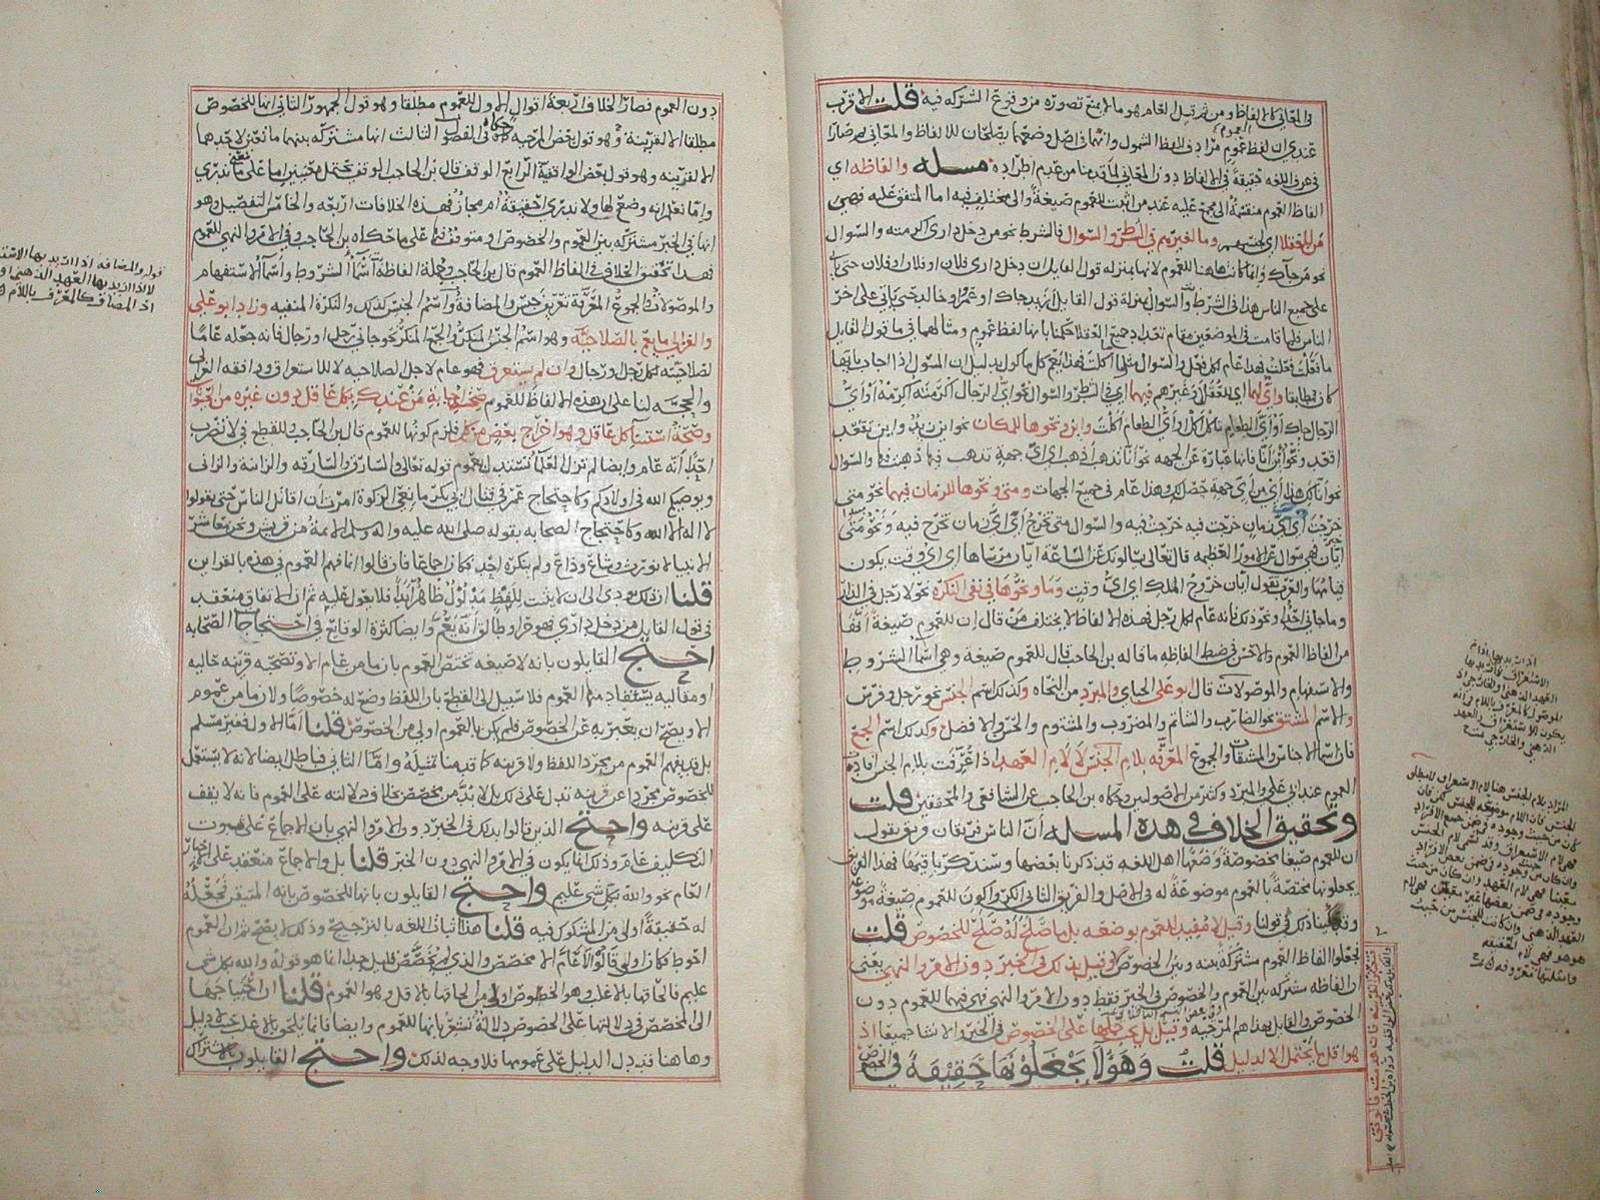 في المعاني كالالفاظ ومن ثم قيل العام هو ما لا يمنع تصوره من وقوع الشركة فيه قلت الاقرب
عندي ان لفظ عموم مرادف للفظ الشمول وانهما في اصل وضعهما يصلحان للالفاظ والمعاني ثم صارا
في عرف اللغه حقيقة في الالفاظ دون المعاني لما قدمنا من عدم اطراده مسله والفاظه اي
الفاظ العموم منقسمة الى مجمع عليه عند من اثبت للعموم صيغة والى مختلف فيه اما المتفق عليه فهي
من للعقلا اي لجنسهم وما لغيرهم في الشرط والسوال فالشرط نحو من دخل داري اكرمته والسوال
نحو من جاك وانما كانتا هنا للعموم لانها بمنزله قول القايل ان دخل داري فلان او فلان او فلان حتى ياتي
على جميع الناس هذا في الشرط واما السوال بمنزلة قول القايل ازيد جاك او عمرو او خالد حتى ياتي على اخر
الناس فلما قامت في الموضعين مقام تعداد جميع العقلا حكمنا بانها لفظ عموم ومثالهما في ما قول القايل
ما تفعل افعل فهذا عام لكل فعل والسوال مثل ما اكلت فهذا يعم كل ماكول بدليل ان المسول اذا اجاب بايها
كان مطابقا واي لهما اي للعقلا وغيرهم فيهما اي في الشرط والسوال نحو اي الرجال اكرمته اكرمه او اي
الرجال جاك او اي الطعام تاكل اكل او اي الطعام اكلت واين ونحوها للمكان نحو اين زيد واين تقعد
اقعد ونحو انى فانها عباره عن الجهه نحو انا تذهب اذهب اي اي جهة تذهب فيها ذهبت فيها والسوال
نحو اناك هذا اي من اي جهة حصل لك وهذا عام في جميع الجهات ومتى ونحوها للزمان فيهما نحو متى
خرجت اي اي زمان خرجت فيه خرجت فيه والسوال متى تخرج اي اي زمان تخرج فيه ونحو متى
ايان فهي سوال عن الامور العظيمه قال تعالى يسالونك عن الساعة ايان مرساها اي اي وقت يكون
قيامها والعرب تقول ايان خروج الملك اي اي وقت وما ونحوها في نفي النكرة نحو لا رجل في الدار
وما جاني احد ونحو ذلك فانه عام لكل رجل فهذه الالفاظ لا يختلف من قال ان للعموم صيغة انها
من الفاظ العموم والاحسن في ضبط الفاظه ما قاله بن الحاجب قال للعموم صيغة وهي اسما الشروط
والاستفهام والموصولات قال ابو علي الجباي والمبرد من النحاه وكذلك اسم الجنس نحو رجل وفرس
والاسم المشتق نحو الضارب والشاتم والمضروب والمشتوم والخير والافضل وكذلك اسم الجمع
فان اسما الاجناس والمشتقات والجموع المعرفه بلام الجنس لا لام العهد اذا عرفت بلام الجنس افادت
العموم عند ابي علي والمبرد وكثير من الاصوليين وحكاه بن الحاجب عن الشافعي والمحققين قلت
وتحقيق الخلاف في هذه المسله ان الناس فريقان فريق يقول
ان للعموم صيغا مخصوصة وضعها اهل اللغه قد ذكرنا بعضها وسنذكر باقيها فهذا الفريق
يجعلونها مختصة بالعموم موضوعة له في الاصل والفريق الثاني انكروا كون للعموم صيغة موضوعة
وقد بينا ذلك في قولنا وقيل لا مفيد للعموم بوضعه بل ما صلح له صلح للخصوص قلت
فجعلوا الفاظ العموم مشتركة بينه وبين الخصوص وقيل بذلك في الخبر دون الامر والنهي يعني
ان الفاظه مشتركه بين العموم والخصوص في الخبر فقط دون الامر والنهي فهي فيهما للعموم دون
الخصوص والقايل بهذا هم المرجيه وقيل بل يجب حملها على الخصوص في الخبر والانشا جميعا اذ
هو اقل ما يحتمل الا لدليل قلت وهولا يجعلونها حقيقة في الخصوص
دون العموم فصار الخلاف اربعة اقوال الاول للعموم مطلقا وهو قول الجمهور الثاني انها للخصوص
مطلقا الا لقرينة وهو قول بعض المرجيه حكاه في الفصول الثالث انها مشتركه بينهما ما تعين لاحدهما
الا لقرينه وهو قول بعض الواقفية الرابع الوقف قال بن الحاجب الوقف يحتمل معنيين اما على معنى ما ندري
واما نعلم انه وضع لها ولا ندري احقيقة ام مجاز فهذه الخلافات اربعه والخامس التفصيل وهو
انها في الخبر مشتركه بين العموم والخصوص او متوقف فيها على ما حكاه بن الحاجب وفي الامر والنهي للعموم
فهذا تحقيق الخلاف في الفاظ العموم قال بن الحاجب وجملة الفاظه اسما الشروط واسما الاستفهام
والموصولات والجموع المعرفة تعريف جنس والمضافة واسم الجنس كذلك والنكرة المنفيه وزاد ابو علي
والغزالي ما يعم بالصلاحيه وهو اسم الجنس المنكر والجمع المنكر نحو جاني رجل او رجال فانه جعله عاما
لصلاحيته لكل رجل ورجال وان لم يستغرق فهو عام لاجل الصلاحيه لا للاستغراق ووافقه الغزالي
والحجه لنا على ان هذه الالفاظ للعموم صحة الاجابة من عندك بكل عاقل دون غيره من قبول
وصحة استثنا كل عاقل وهو اخراج بعض من كل فلزم كونها للعموم قال بن الحاجب وللقطع في لا تضرب
احدا انه عام وايضا لم تزل العلما تستدل بعموم قوله تعالى والسارق والسارقه والزانية والزاني
ويوصيكم الله في اولادكم وكاحتجاج عمر في قتال ابي بكر مانعي الزكوة امرت ان اقاتل الناس حتى يقولوا
لا اله الا الله وكاحتجاج الصحابه بقوله صلى الله عليه واله وسلم الائمة من قريش ونحن معاشر
الانبيا لا نورث وشاع وذاع ولم ينكره احد فكان اجماعا فان قالوا انما فهم العموم في هذه بالقراين
قلنا ان ذلك يودي الى ان لا يثبت للفظ مدلول ظاهر ابدا فلا يعول عليه ثم ان الاتفاق منعقد
في قول القايل من دخل داري فهو حر او طالق انه يعم وايضا كثرة الوقايع في احتجاجات الصحابه
احتج القايلون بانه لا صيغه تخص العموم بان ما من عام الا وتصحبه قرينه حاليه
او مقاليه يستفاد منها العموم فلا سبيل الى القطع بان اللفظ وضع له خصوصا ولان ما من عموم
الا ويصح ان يعبر به عن الخصوص فلم يكن بالعموم اولى من الخصوص قلنا اما الاول فغير مسلم
بل قد يفهم العموم من مجرد اللفظ ولا قرينه كما قدمنا تمثيله واما الثاني فباطل ايضا لانه لا يستعمل
للخصوص مجردا عن قرينه تدل على ذلك بل لا بد من مخصص بخلاف دلالته على العموم فانه لا يقف
على قرينه واحتج الذين قالوا بذلك في الخبر دون الامر والنهي بان الاجماع على ثبوت
التكليف عام وذلك انما يكون في الامر والنهي دون الخبر قلنا بل والاجماع منعقد على الخبر
العام نحو والله بكل شي عليم واحتج القايلون بانها للخصوص بانه المتيقن فجعله
له حقيقة اولى من المشكوك فيه قلنا هذا اثبات اللغه بالترجيح وذلك لا يصح ثم ان العموم
احوط فكان اولى قالوا لا عام الا مخصص والذي لم يخصص قليل جدا انما هو قوله والله بكل شي
عليم فالحاقها بالاغلب وهو الخصوص اولى من الحاقها بالاقل وهو العموم قلنا ان احتياجها
الى المخصص في دلالتها على الخصوص دلالة تشعر بانها للعموم وايضا فانما يلحق بالاغلب حيث لا دليل
وهاهنا قد دل الدليل على عمومها فلا وجه لذلك واحتج القايلون بالاشتراك